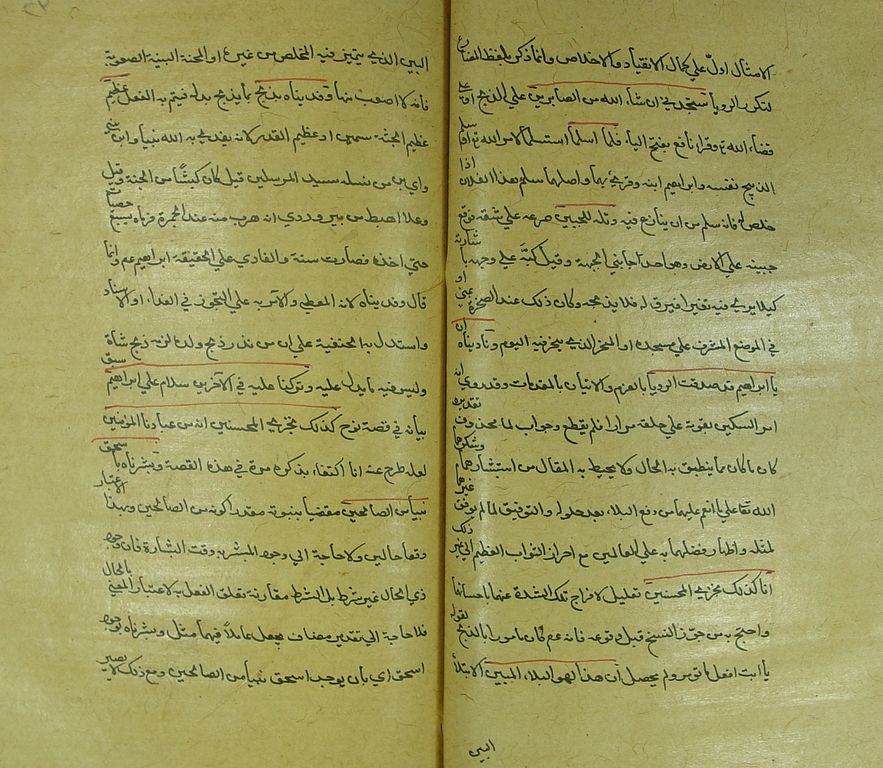 الامتثال اولا على كمال الانقياد والاخلاص وانما ذكر بلفظ المضارع
لتكرر الرويا ستجدني ان شاء الله من الصابرين على الذبح او على
قضاء الله تع وقراء نافع بفتح الياء فلما اسلما استسلما لامر الله تع او سلم
الذبيح نفسه وابراهيم ابنه وقد قرئ بهما واصلها سلم هذا لفلان اذا
خلص له فانه سلم من ان ينازع فيه وتله للجبين صرعه على شقه فوقع
جبينه على الارض وهو احد جانبي الجبهة وقيل كبه على وجهه باشارته
كيلا يرى فيه تغيرا فيرق له فلا يذبحه وكان ذلك عند الصخرة بمنى او
في الموضع المشرف على مسجده او المنحر الذي ينحر فيه اليوم وناديناه ان
يا ابراهيم قد صدقت الرويا بالعزم والاتيان بالمقدمات وقد روي انه
امر السكين بقوته على حلقه مرارا فلم يقطع وجواب لما محذوف تقديره
كان ما كان مما ينطق به الحال ولا يحيط به المقال من استبشارهما وشكرهما
الله تعا على ما انعم عليهما من دفع البلاء بعد حلوله والتوفيق لما لم يوفق غيرهما
لمثله واظهار فضلهما به على العالمين مع احراز الثواب العظيم الى غير ذلك
انا كذلك نجزي المحسنين تعليل لافراج تلك الشدة عنهما باحسانهما
واحتج به من جوز النسخ قبل وقوعه فانه عم كان مامورا بالذبح لقوله
يا ابت افعل ما تؤمر ولم يحصل ان هذا لهو البلاء المبين الابتلاء
البين
البين الذي يتميز فيه المخلص من غيره او المحنة البينة الصعوبة
فانه لا اصعب منها وفديناه بذبح بما يذبح بدله فيتم به الفعل عظيم
عظيم الجثة سمين او عظيم القدر لانه يفدي به الله نبيا وابن نبي
واي ابن من نسله سيد المرسلين قيل كان كبشا من الجنة وقيل
وعلا اهبط من ثبير وروي انه هرب منه عند الجمرة فرماه بسبع حصيات
حتى اخذه فصارت سنة والفادي على الحقيقة ابراهيم عم وانما
قال وفديناه لانه المعطي والآمر به على التجوز في الفداء او الاسناد
واستدل به الحنفية على ان من نذر ذبح ولده لزمه ذبح شاة
وليس فيه ما يدل عليه وتركنا عليه في الآخرين سلام على ابراهيم سبق
بيانه في قصة نوح كذلك نجزي المحسنين انه من عبادنا المؤمنين
لعله طرح عنه انا اكتفاء بذكره مرة في هذه القصة وبشرناه باسحق
نبيا من الصالحين مقضيا بنبوته مقدرا كونه من الصالحين وبهذا الاعتبار
وقعا حالين ولا حاجة الى وجود المبشر به وقت البشارة فان وجود
ذي الحال غير شرط بل الشرط مقارنة تعلق الفعل به لاعتبار المعنى بالحال
فلا حاجة الى تقدير مضاف يجعل عاملا فيهما مثل وبشرناه بوجود
اسحق اي بان يوجد اسحق نبيا من الصالحين ومع ذلك لا يصير